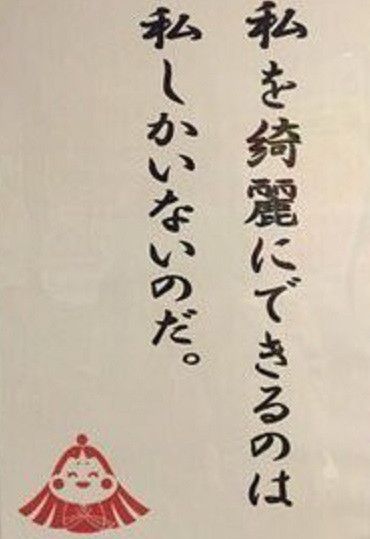 私を綺麗にできるのは
私しかいないのだ。